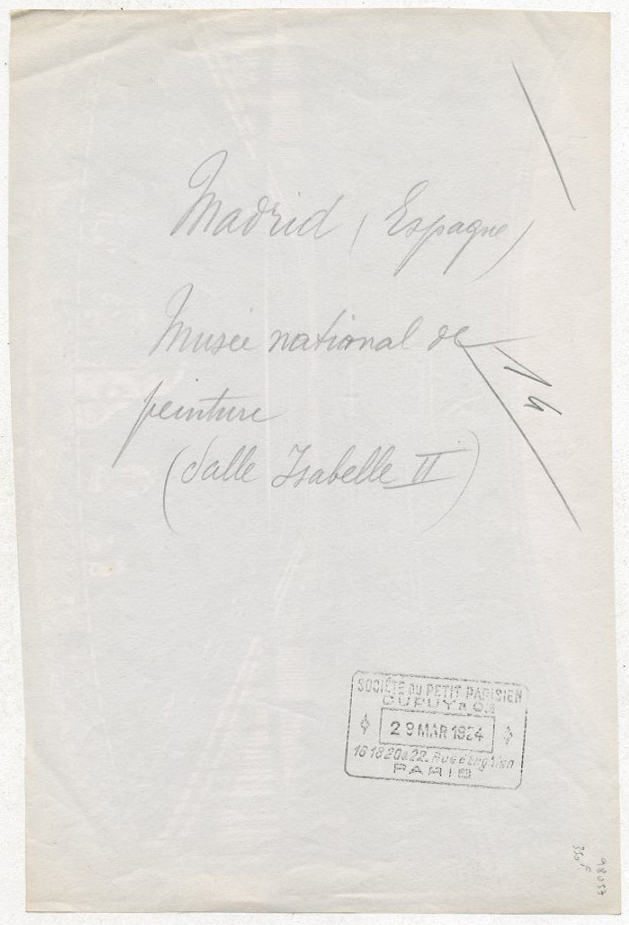 Madrid (Espagne)
Musée national de
peinture
(Salle Isabelle II)
14
SOCIÉTÉ DU PETIT PARISIEN
DUPUY & Cie
29 MAR 1924
16 18 20 & 22. Rue d'Enghien
PARIS
350f
98037